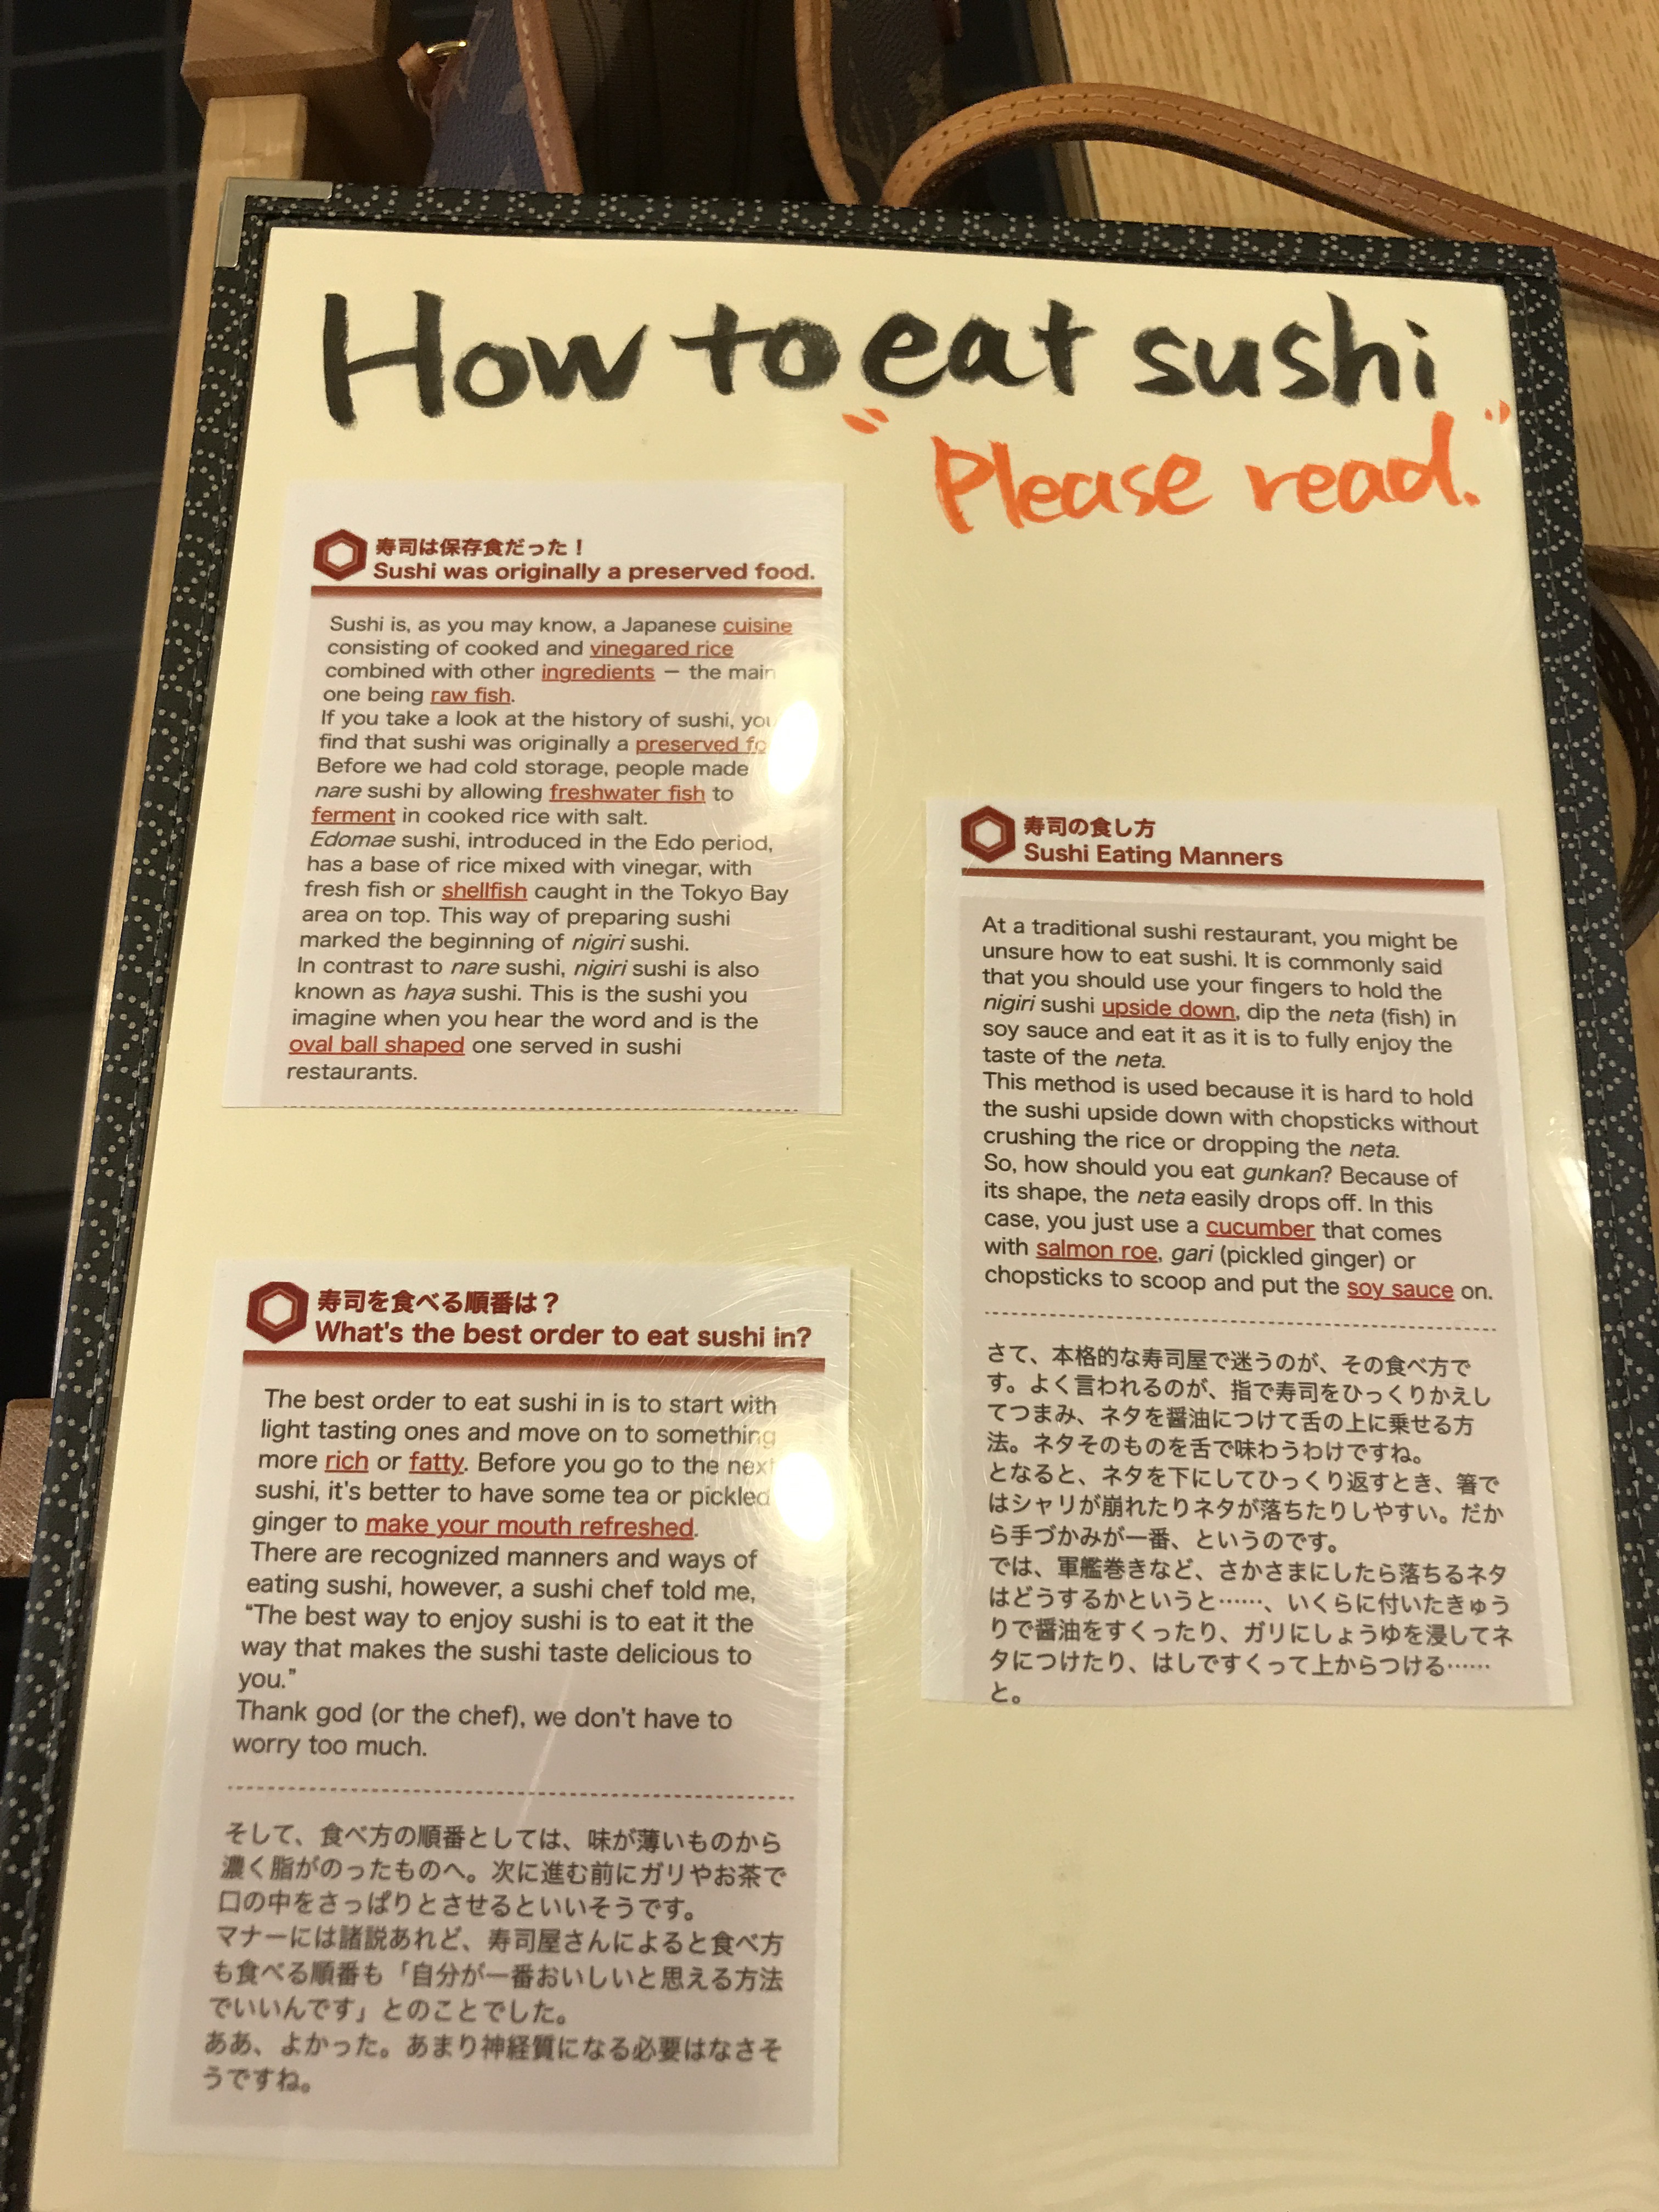 How to eat sushi
"Please read."
寿司は保存食だった！
Sushi was originally a preserved food.
Sushi is, as you may know, a Japanese cuisine
consisting of cooked and vinegared rice
combined with other ingredients — the main
one being raw fish.
If you take a look at the history of sushi, you
find that sushi was originally a preserved
Before we had cold storage, people made
nare sushi by allowing freshwater fish to
ferment in cooked rice with salt.
Edomae sushi, introduced in the Edo period,
has a base of rice mixed with vinegar, with
fresh fish or shellfish caught in the Tokyo Bay
area on top. This way of preparing sushi
marked the beginning of nigiri sushi.
In contrast to nare sushi, nigiri sushi is also
known as haya sushi. This is the sushi you
imagine when you hear the word and is the
oval ball shaped one served in sushi
restaurants.
寿司を食べる順番は？
What's the best order to eat sushi in?
The best order to eat sushi in is to start with
light tasting ones and move on to something
more rich or fatty. Before you go to the next
sushi, it's better to have some tea or pickled
ginger to make your mouth refreshed.
There are recognized manners and ways of
eating sushi, however, a sushi chef told me,
"The best way to enjoy sushi is to eat it the
way that makes the sushi taste delicious to
you."
Thank god (or the chef), we don't have to
worry too much.
そして、食べ方の順番としては、味が薄いものから
濃く脂がのったものへ。次に進む前にガリやお茶で
口の中をさっぱりとさせるといいそうです。
マナーには諸説あれど、寿司屋さんによると食べ方
も食べる順番も「自分が一番おいしいと思える方法
でいいんです」とのことでした。
ああ、よかった。あまり神経質になる必要はなさそ
うですね。
寿司の食し方
Sushi Eating Manners
At a traditional sushi restaurant, you might be
unsure how to eat sushi. It is commonly said
that you should use your fingers to hold the
nigiri sushi upside down, dip the neta (fish) in
soy sauce and eat it as it is to fully enjoy the
taste of the neta.
This method is used because it is hard to hold
the sushi upside down with chopsticks without
crushing the rice or dropping the neta.
So, how should you eat gunkan? Because of
its shape, the neta easily drops off. In this
case, you just use a cucumber that comes
with salmon roe, gari (pickled ginger) or
chopsticks to scoop and put the soy sauce on.
さて、本格的な寿司屋で迷うのが、その食べ方で
す。よく言われるのが、指で寿司をひっくりかえし
てつまみ、ネタを醤油につけて舌の上に乗せる方
法。ネタそのものを舌で味わうわけですね。
となると、ネタを下にしてひっくり返すとき、箸で
はシャリが崩れたりネタが落ちたりしやすい。だか
ら手づかみが一番、というのです。
では、軍艦巻きなど、さかさまにしたら落ちるネタ
はどうするかというと……、いくらに付いたきゅう
りで醤油をすくったり、ガリにしょうゆを浸してネ
タにつけたり、はしですくって上からつける……
と。